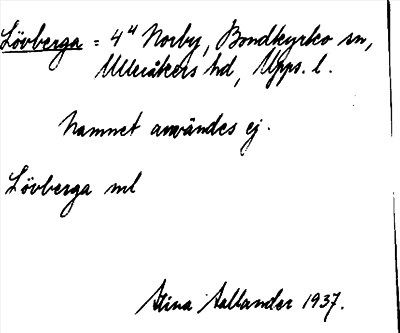 Lövberga = 4⁴ Norby, Bondkyrko sn,
Ulleråkers hd, Upps. l.
Namnet användes ej.
Lövberga ml
Stina Aallander 1937.